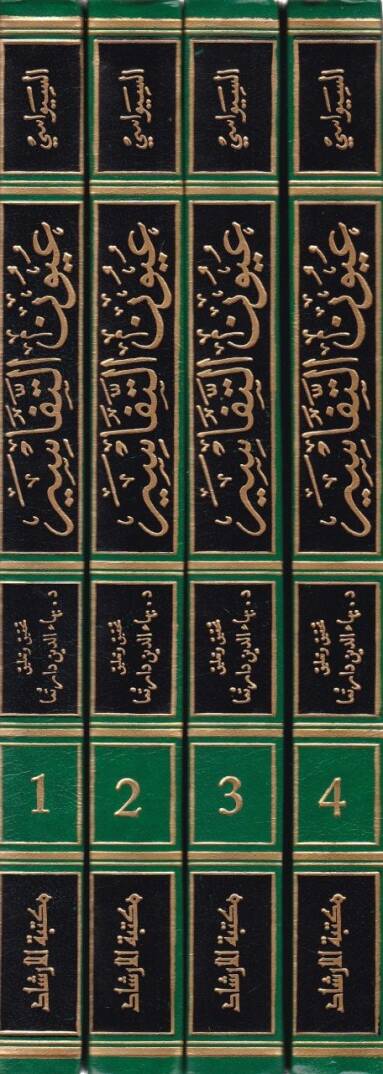 السيواسي
عيون التفاسير
تحقيق وتعليق
د. بهاء الدين دارتما
1
مكتبة الارشاد
السيواسي
عيون التفاسير
تحقيق وتعليق
د. بهاء الدين دارتما
2
مكتبة الارشاد
السيواسي
عيون التفاسير
تحقيق وتعليق
د. بهاء الدين دارتما
3
مكتبة الارشاد
السيواسي
عيون التفاسير
تحقيق وتعليق
د. بهاء الدين دارتما
4
مكتبة الارشاد